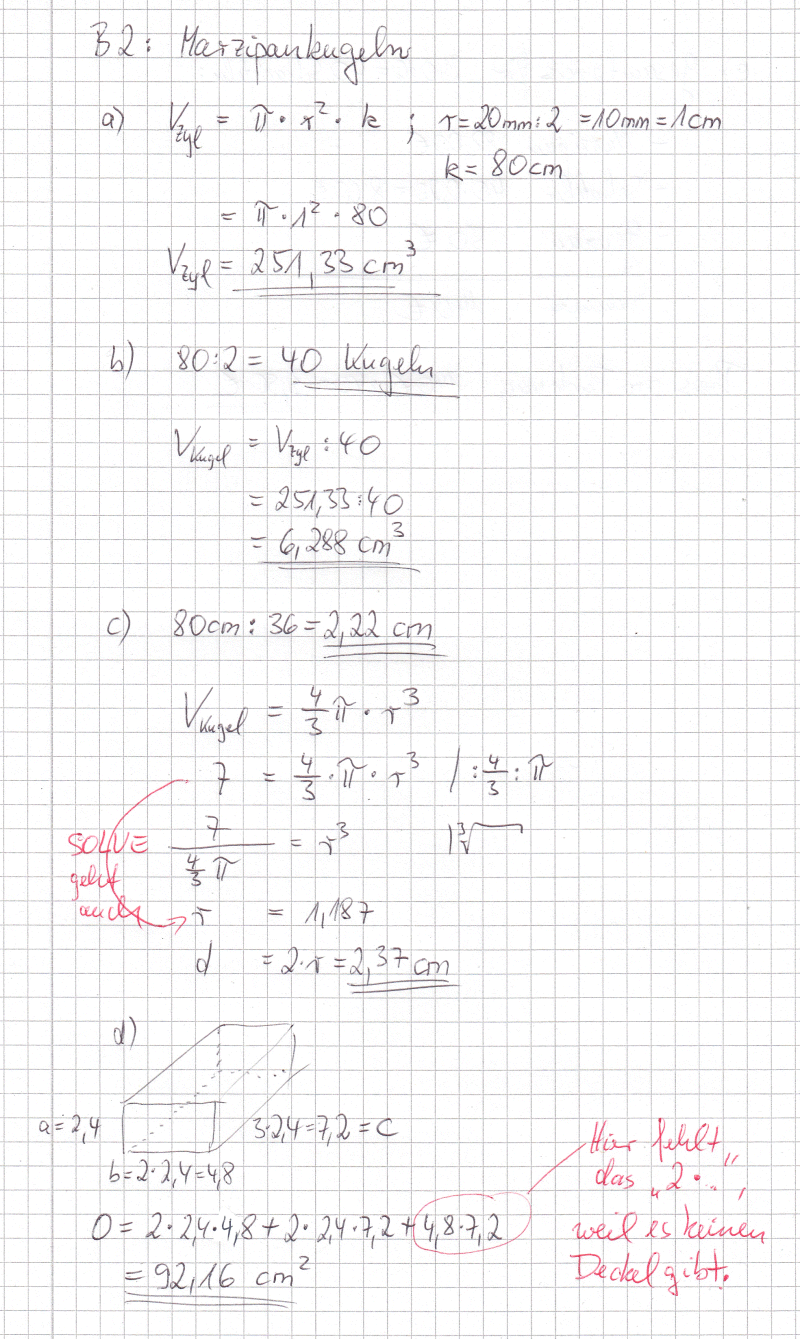 B2: Marzipankugeln
a) V_Zyl = π · r² · k ; r = 20mm : 2 = 10mm = 1cm
k = 80cm
= π · 1² · 80
V_Zyl = 251,33 cm³
b) 80 : 2 = 40 Kugeln
V_Kugel = V_Zyl : 40
= 251,33 : 40
= 6,288 cm³
c) 80cm : 36 = 2,22 cm
V_Kugel = 4/3 π · r³
7 = 4/3 · π · r³ / : 4/3 : π
SOLVE geht auch
7 / (4/3 π) = r³ |∛
r = 1,187
d = 2 · r = 2,37 cm
d)
a = 2,4
3 · 2,4 = 7,2 = c
b = 2 · 2,4 = 4,8
O = 2 · 2,4 · 4,8 + 2 · 2,4 · 7,2 + 4,8 · 7,2
= 92,16 cm²
Hier fehlt
das „2 · .. “,
weil es keinen
Deckel gibt.